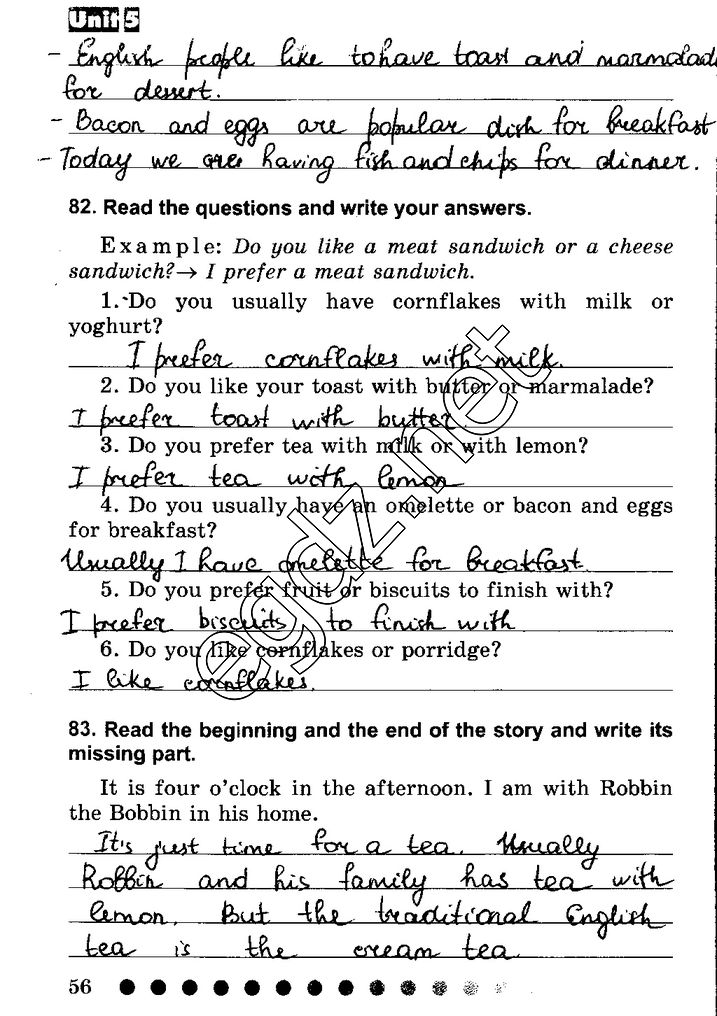 Unit 5
- English people like to have toast and marmalade
for dessert.
- Bacon and eggs are popular dish for breakfast
- Today we are having fish and chips for dinner.
82. Read the questions and write your answers.
Example: Do you like a meat sandwich or a cheese
sandwich?→ I prefer a meat sandwich.
1. Do you usually have cornflakes with milk or
yoghurt?
I prefer cornflakes with milk.
2. Do you like your toast with butter or marmalade?
I prefer toast with butter
3. Do you prefer tea with milk or with lemon?
I prefer tea with lemon
4. Do you usually have an omelette or bacon and eggs
for breakfast?
Usually I have omelette for breakfast
5. Do you prefer fruit or biscuits to finish with?
I prefer biscuits to finish with
6. Do you like cornflakes or porridge?
I like cornflakes.
83. Read the beginning and the end of the story and write its
missing part.
It is four o'clock in the afternoon. I am with Robbin
the Bobbin in his home.
It's just time for a tea. Usually
Robbin and his family has tea with
lemon. But the traditional English
tea is the cream tea
56
egdz.net